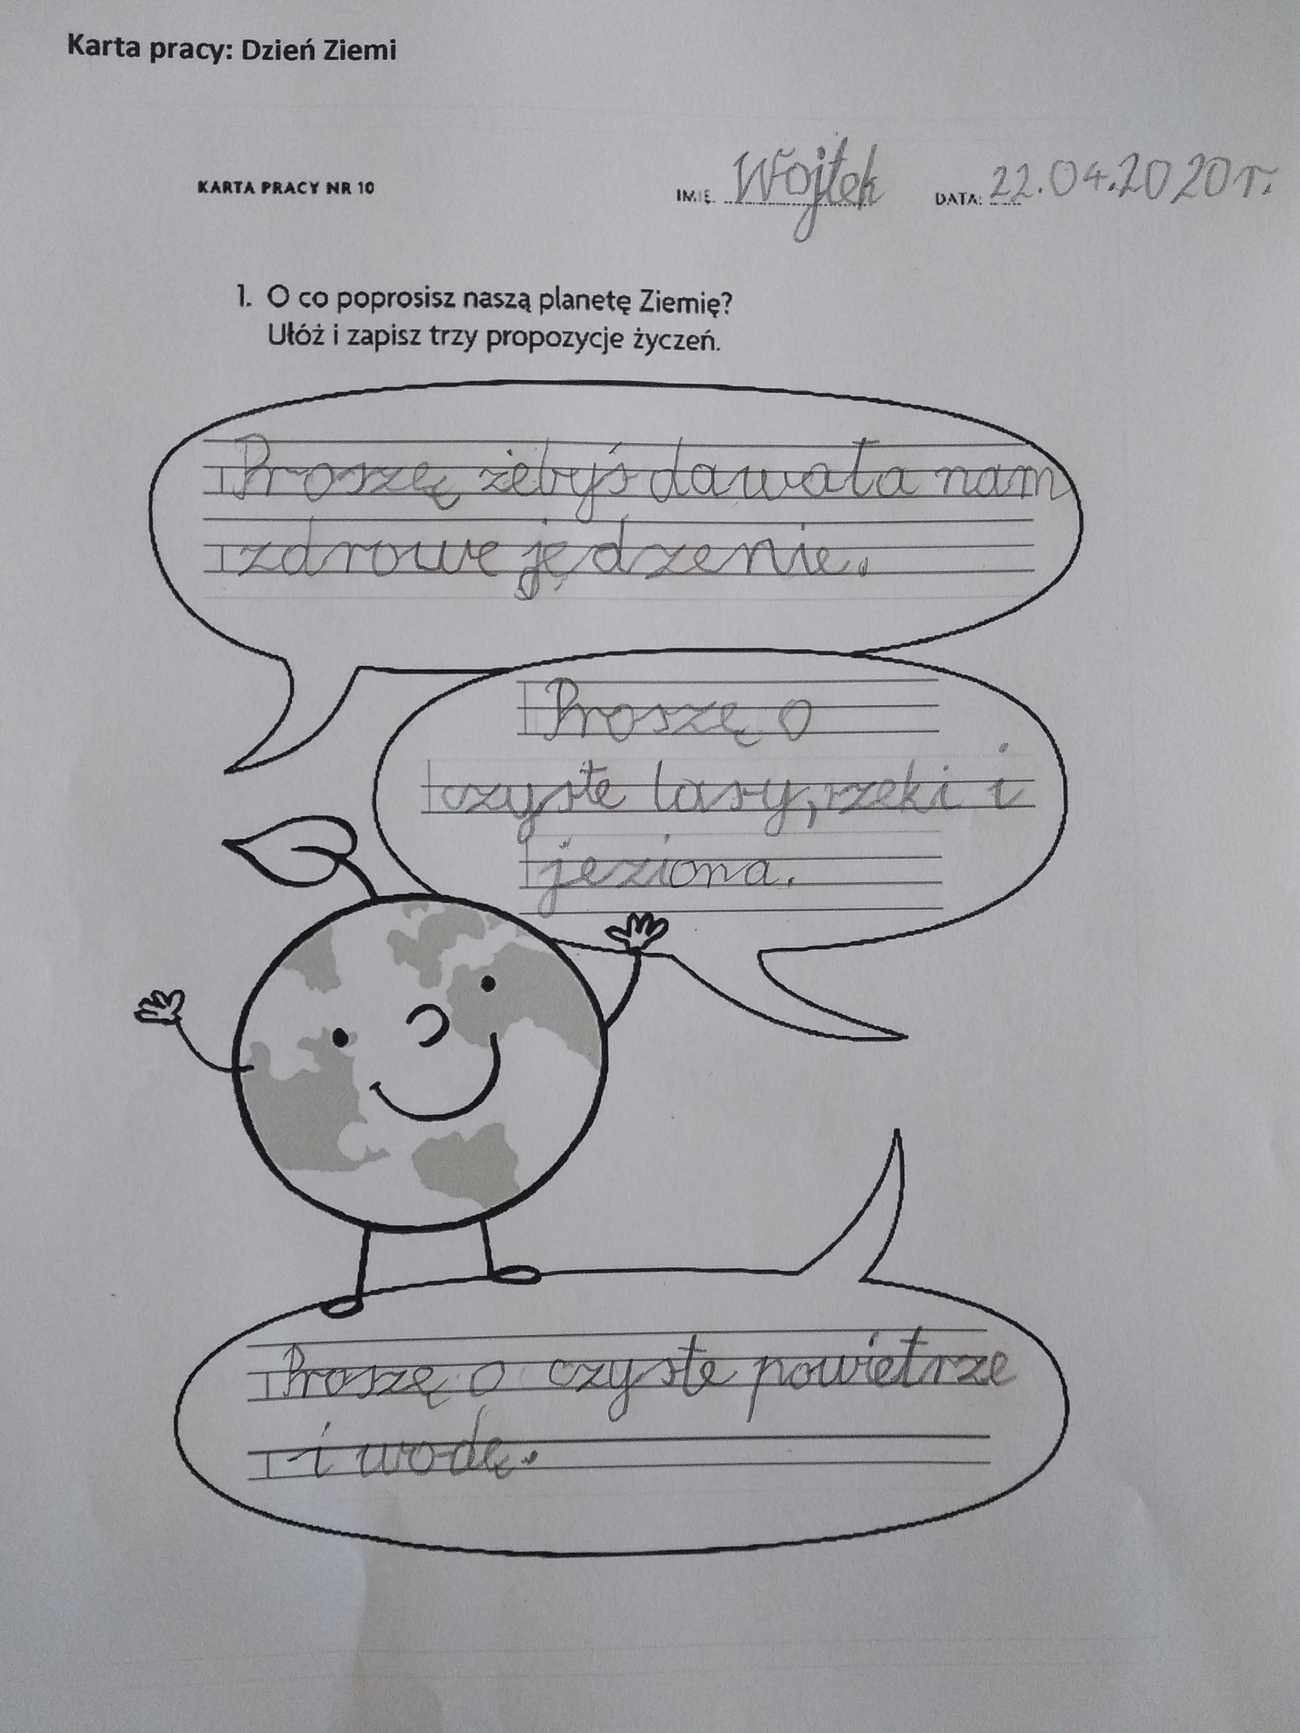 Karta pracy: Dzień Ziemi
KARTA PRACY NR 10 IMIĘ: Wojtek DATA: 22.04.2020 r.
1. O co poprosisz naszą planetę Ziemię?
Ułóż i zapisz trzy propozycje życzeń.
Proszę żebyś dawała nam
zdrowe jędzenie.
Proszę o
czyste lasy, rzeki i
jeziona.
Proszę o czyste powietrze
i wodę.